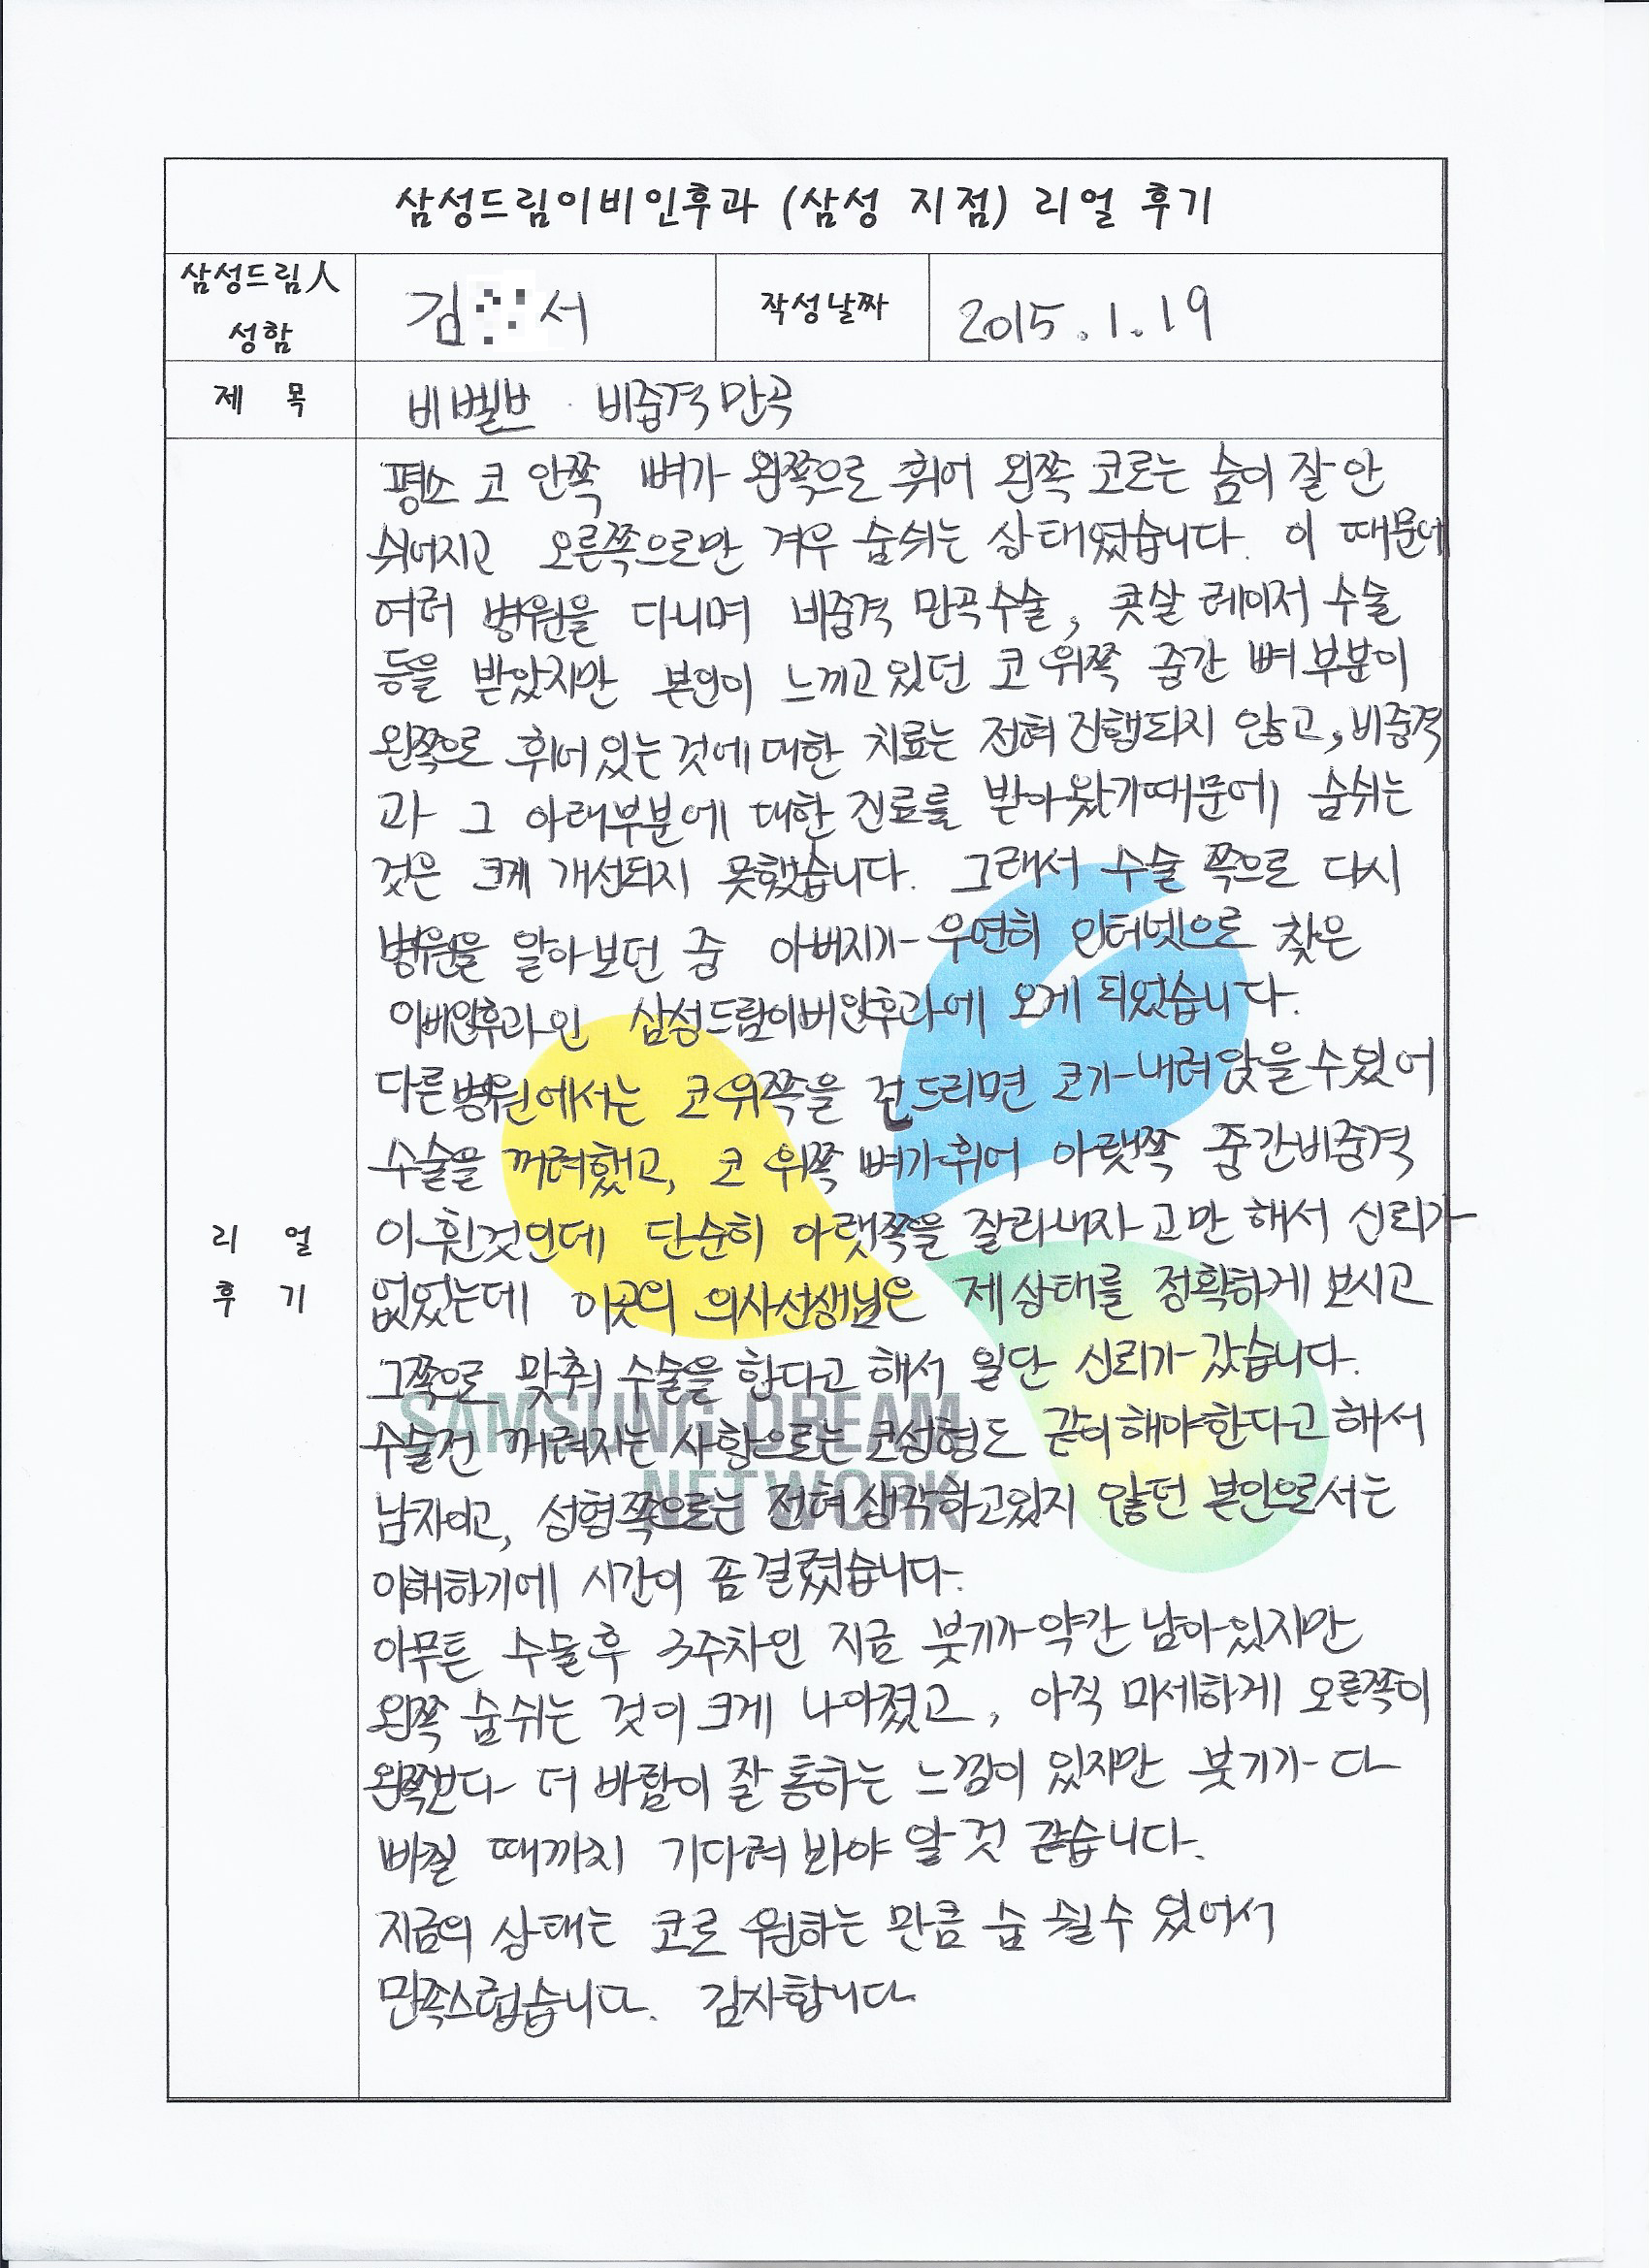 삼성드림이비인후과 (삼성 지점) 리얼 후기
삼성드림人
성함
김 서
작성날짜
2015.1.19
제 목
비밸브 비중격만곡
평소 코 안쪽 뼈가 왼쪽으로 휘어 왼쪽 코로는 숨이 잘 안
쉬어지고 오른쪽으로만 겨우 숨쉬는 상태였습니다. 이 때문에
여러 병원을 다니며 비중격 만곡수술, 콧살 레이저 수술
등을 받았지만 본인이 느끼고있던 코 위쪽 중간 뼈 부분이
왼쪽으로 휘어있는것에 대한 치료는 전혀 진행되지 않고, 비중격
과 그 아래부분에 대한 진료를 받아왔기때문에 숨쉬는
것은 크게 개선되지 못했습니다. 그래서 수술 쪽으로 다시
병원을 알아보던 중 아버지가 우연히 인터넷으로 찾은
이비인후과인 삼성드림이비인후과에 오게 되었습니다.
다른병원에서는 코위쪽을 건드리면 코가 내려앉을수있어
수술을 꺼려했고, 코 위쪽 뼈가휘어 아랫쪽 중간비중격
이휜것인데 단순히 아랫쪽을 잘라내자고만 해서 신뢰가
없었는데 이곳의 의사선생님은 제상태를 정확하게 보시고
그쪽으로 맞춰 수술을 한다고 해서 일단 신뢰가 갔습니다.
수술전 꺼려지는 사항으로는 코성형도 같이해야한다고 해서
남자이고, 성형쪽으로는 전혀생각하고있지 않던 본인으로서는
이해하기에 시간이 좀 걸렸습니다.
아무튼 수술후 3주차인 지금 붓기가 약간 남아있지만
왼쪽 숨쉬는 것이 크게 나아졌고, 아직 미세하게 오른쪽이
왼쪽보다 더 바람이 잘 통하는 느낌이 있지만 붓기가 다
빠질 때까지 기다려 봐야 알것 같습니다.
지금의 상태는 코로 원하는 만큼 숨 쉴수 있어서
만족스럽습니다. 감사합니다
리 얼
후 기
SAMSUNG DREAM
NETWORK